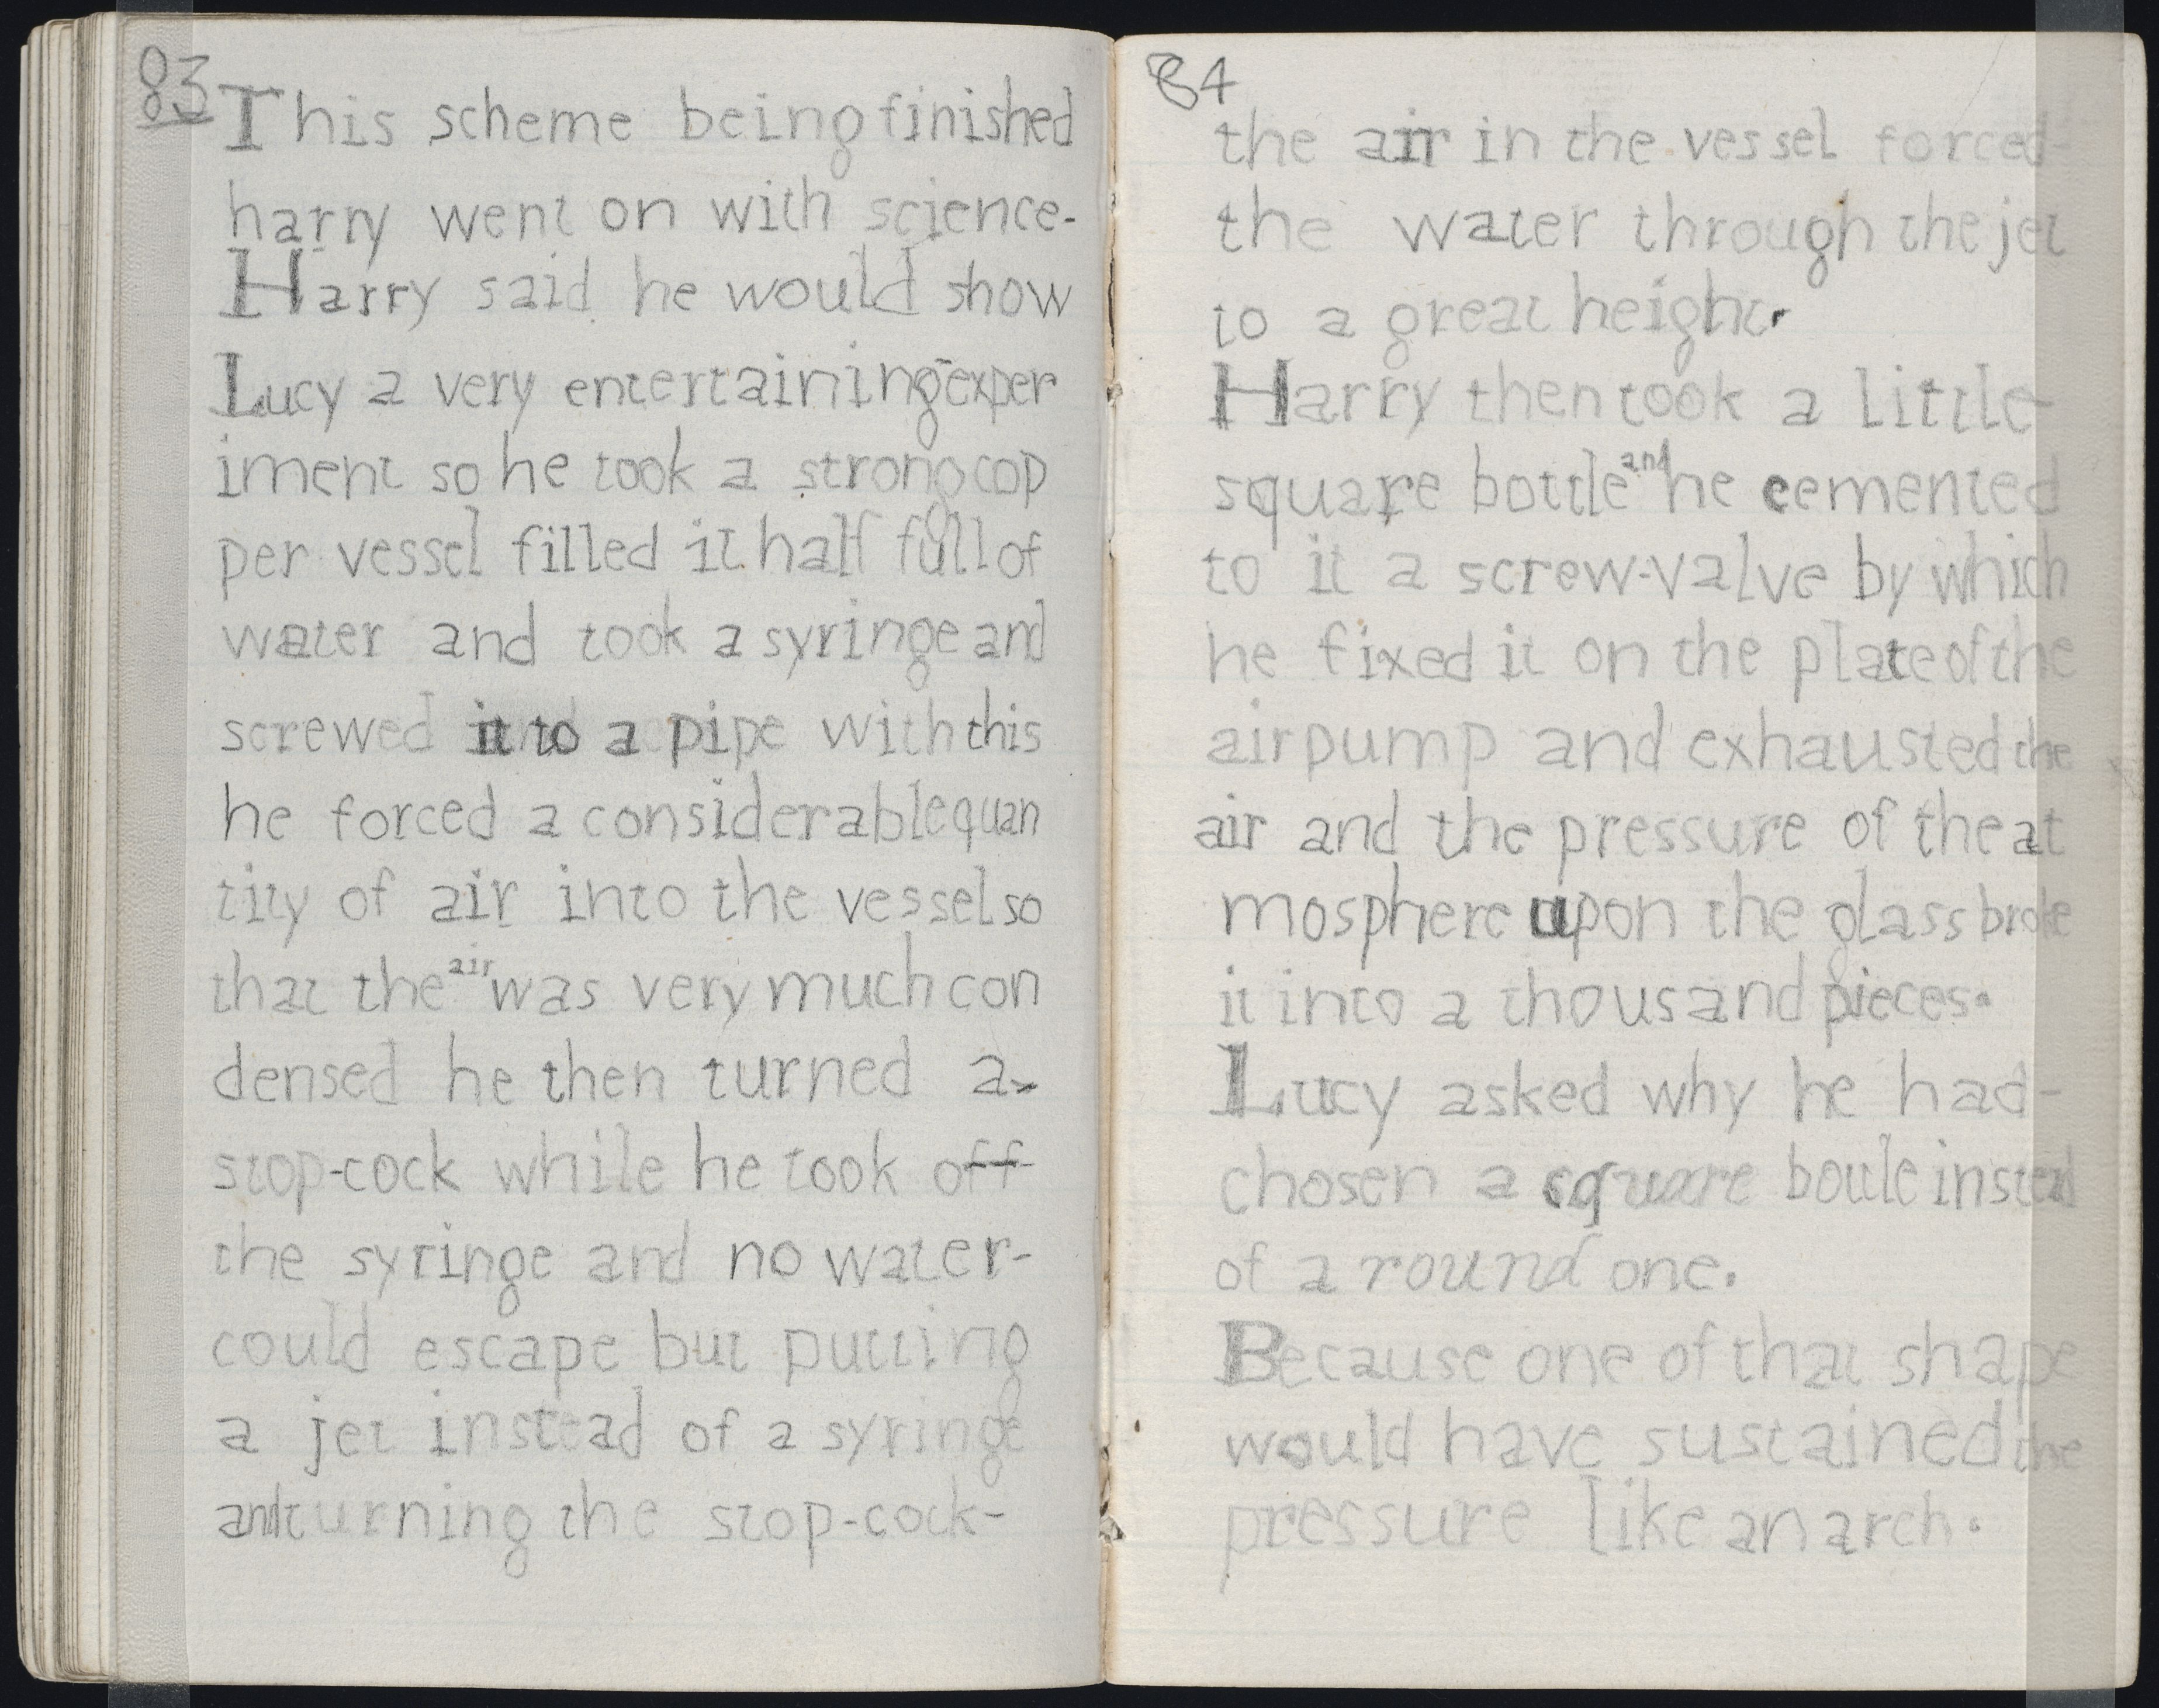 83
This scheme being finished
harry went on with science-
Harry said he would show
Lucy a very entertaining exper
iment so he took a strong cop
per vessel filled it half full of
water and took a syringe and
screwed it to a pipe with this
he forced a considerable quan
tity of air into the vessel so
that the air was very much con
densed he then turned a-
stop-cock while he took off
the syringe and no water-
could escape but putting
a jet instead of a syringe
and turning the stop-cock-
84
the air in the vessel forced-
the water through the jet
to a great height.
Harry then took a little
square bottle and he cemented
to it a screw-valve by which
he fixed it on the plate of the
airpump and exhausted the
air and the pressure of the at
mosphere upon the glass broke
it into a thousand pieces.
Lucy asked why he had-
chosen a square bottle instead
of a round one.
Because one of that shape
would have sustained the
pressure like an arch.